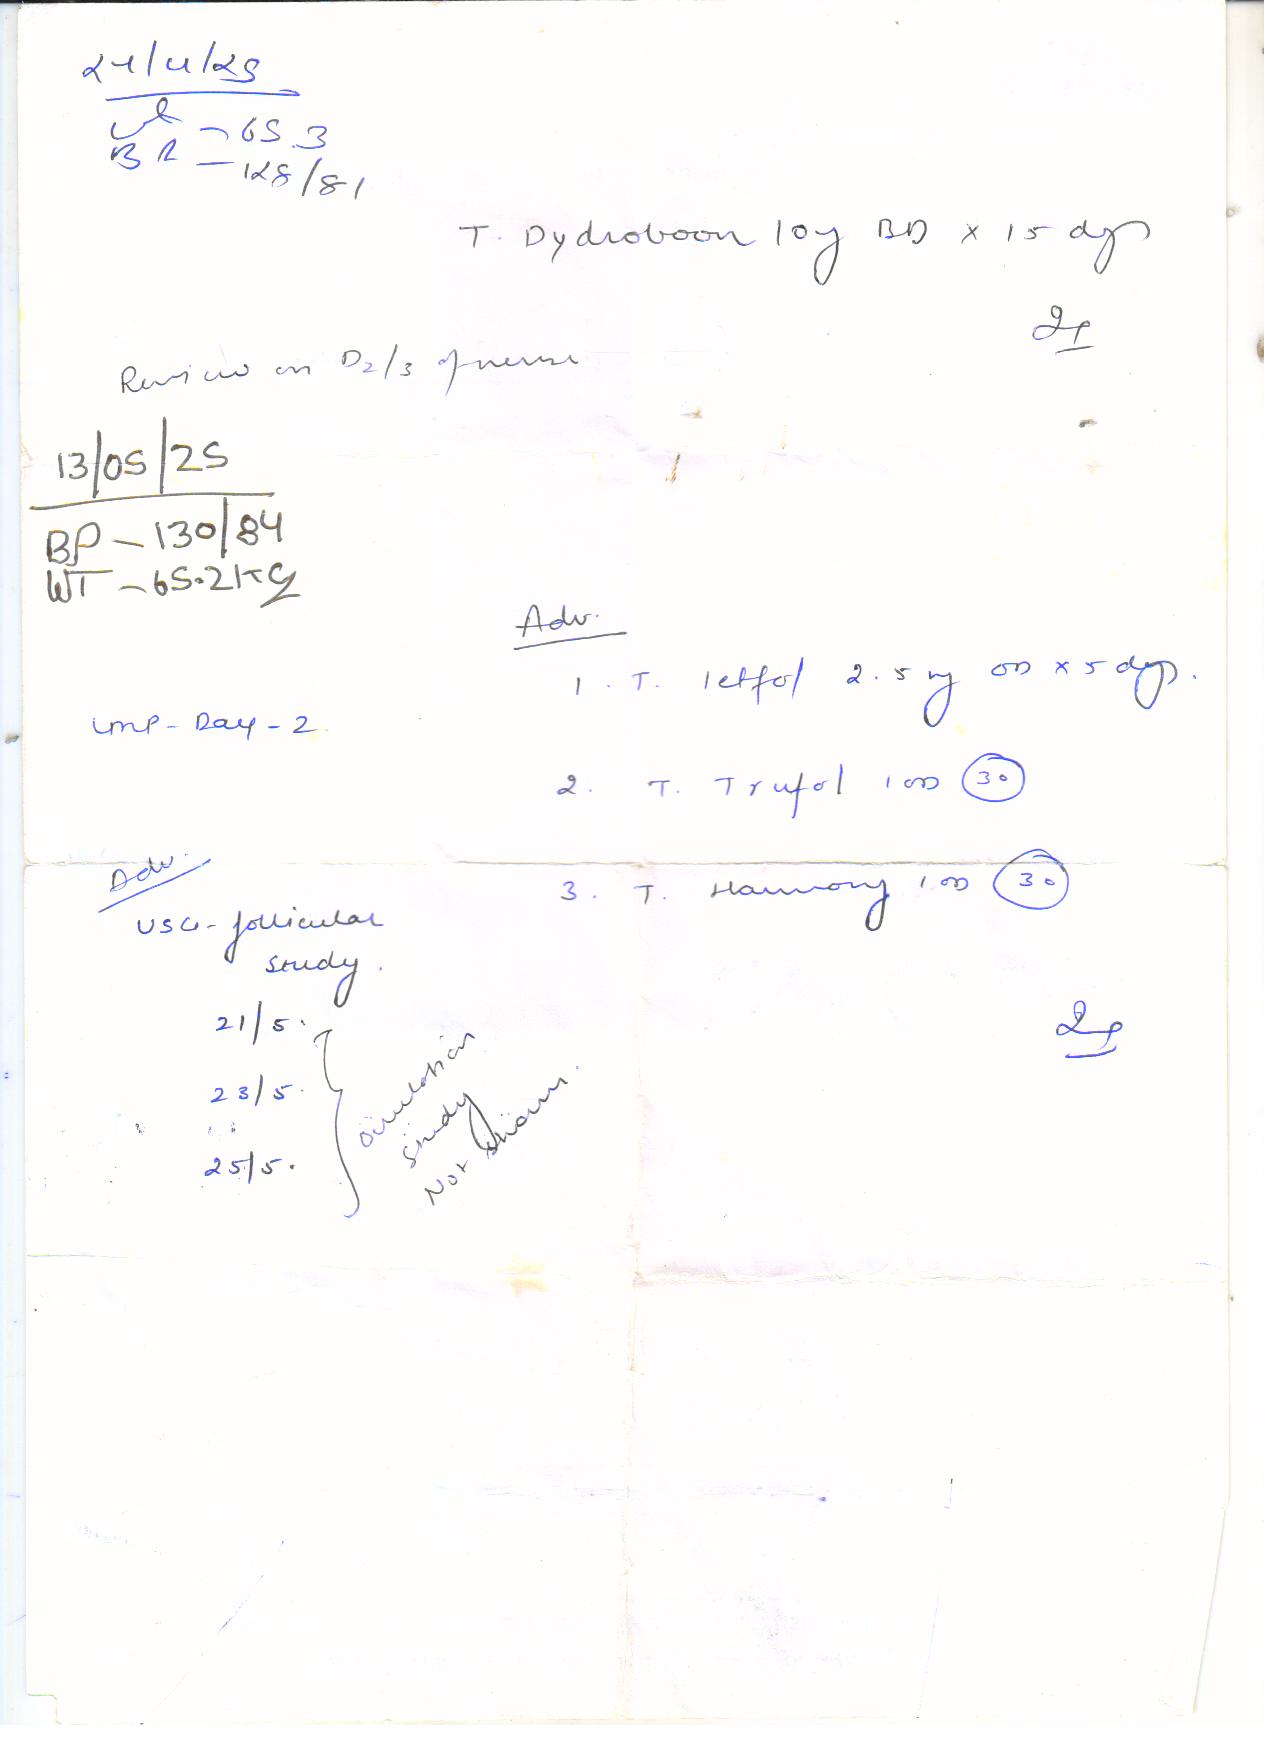 24/4/25
wt - 65.3
BP - 128/81
T. Dydroboon 10mg BD x 15 days
Review on D2/3 of menses
13/05/25
BP - 130/84
WT - 65.2 Kg
Adv.
1. T. letfol 2.5 mg OD x 5 days.
LMP - Day - 2
2. T. Trufol 1 OD 30
Adv.
3. T. Harmony 1 OD 30
USG - follicular
study.
21/5.
23/5.
25/5.
ovulation
study
Not